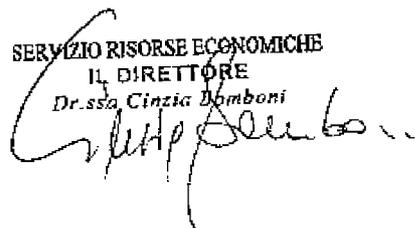 SERVIZIO RISORSE ECONOMICHE
IL DIRETTORE
Dr.ssa Cinzia Bomboni